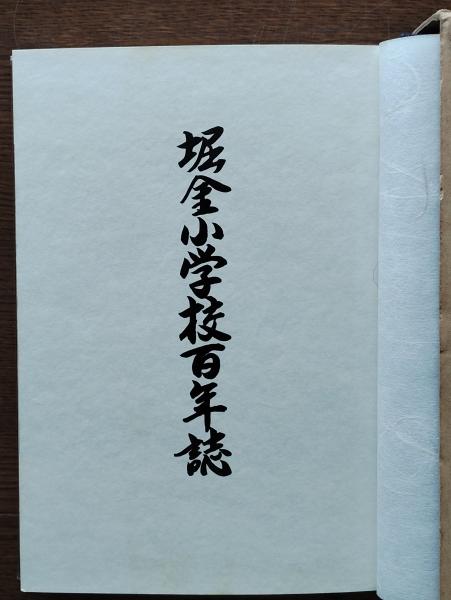 堀金小学校百年誌